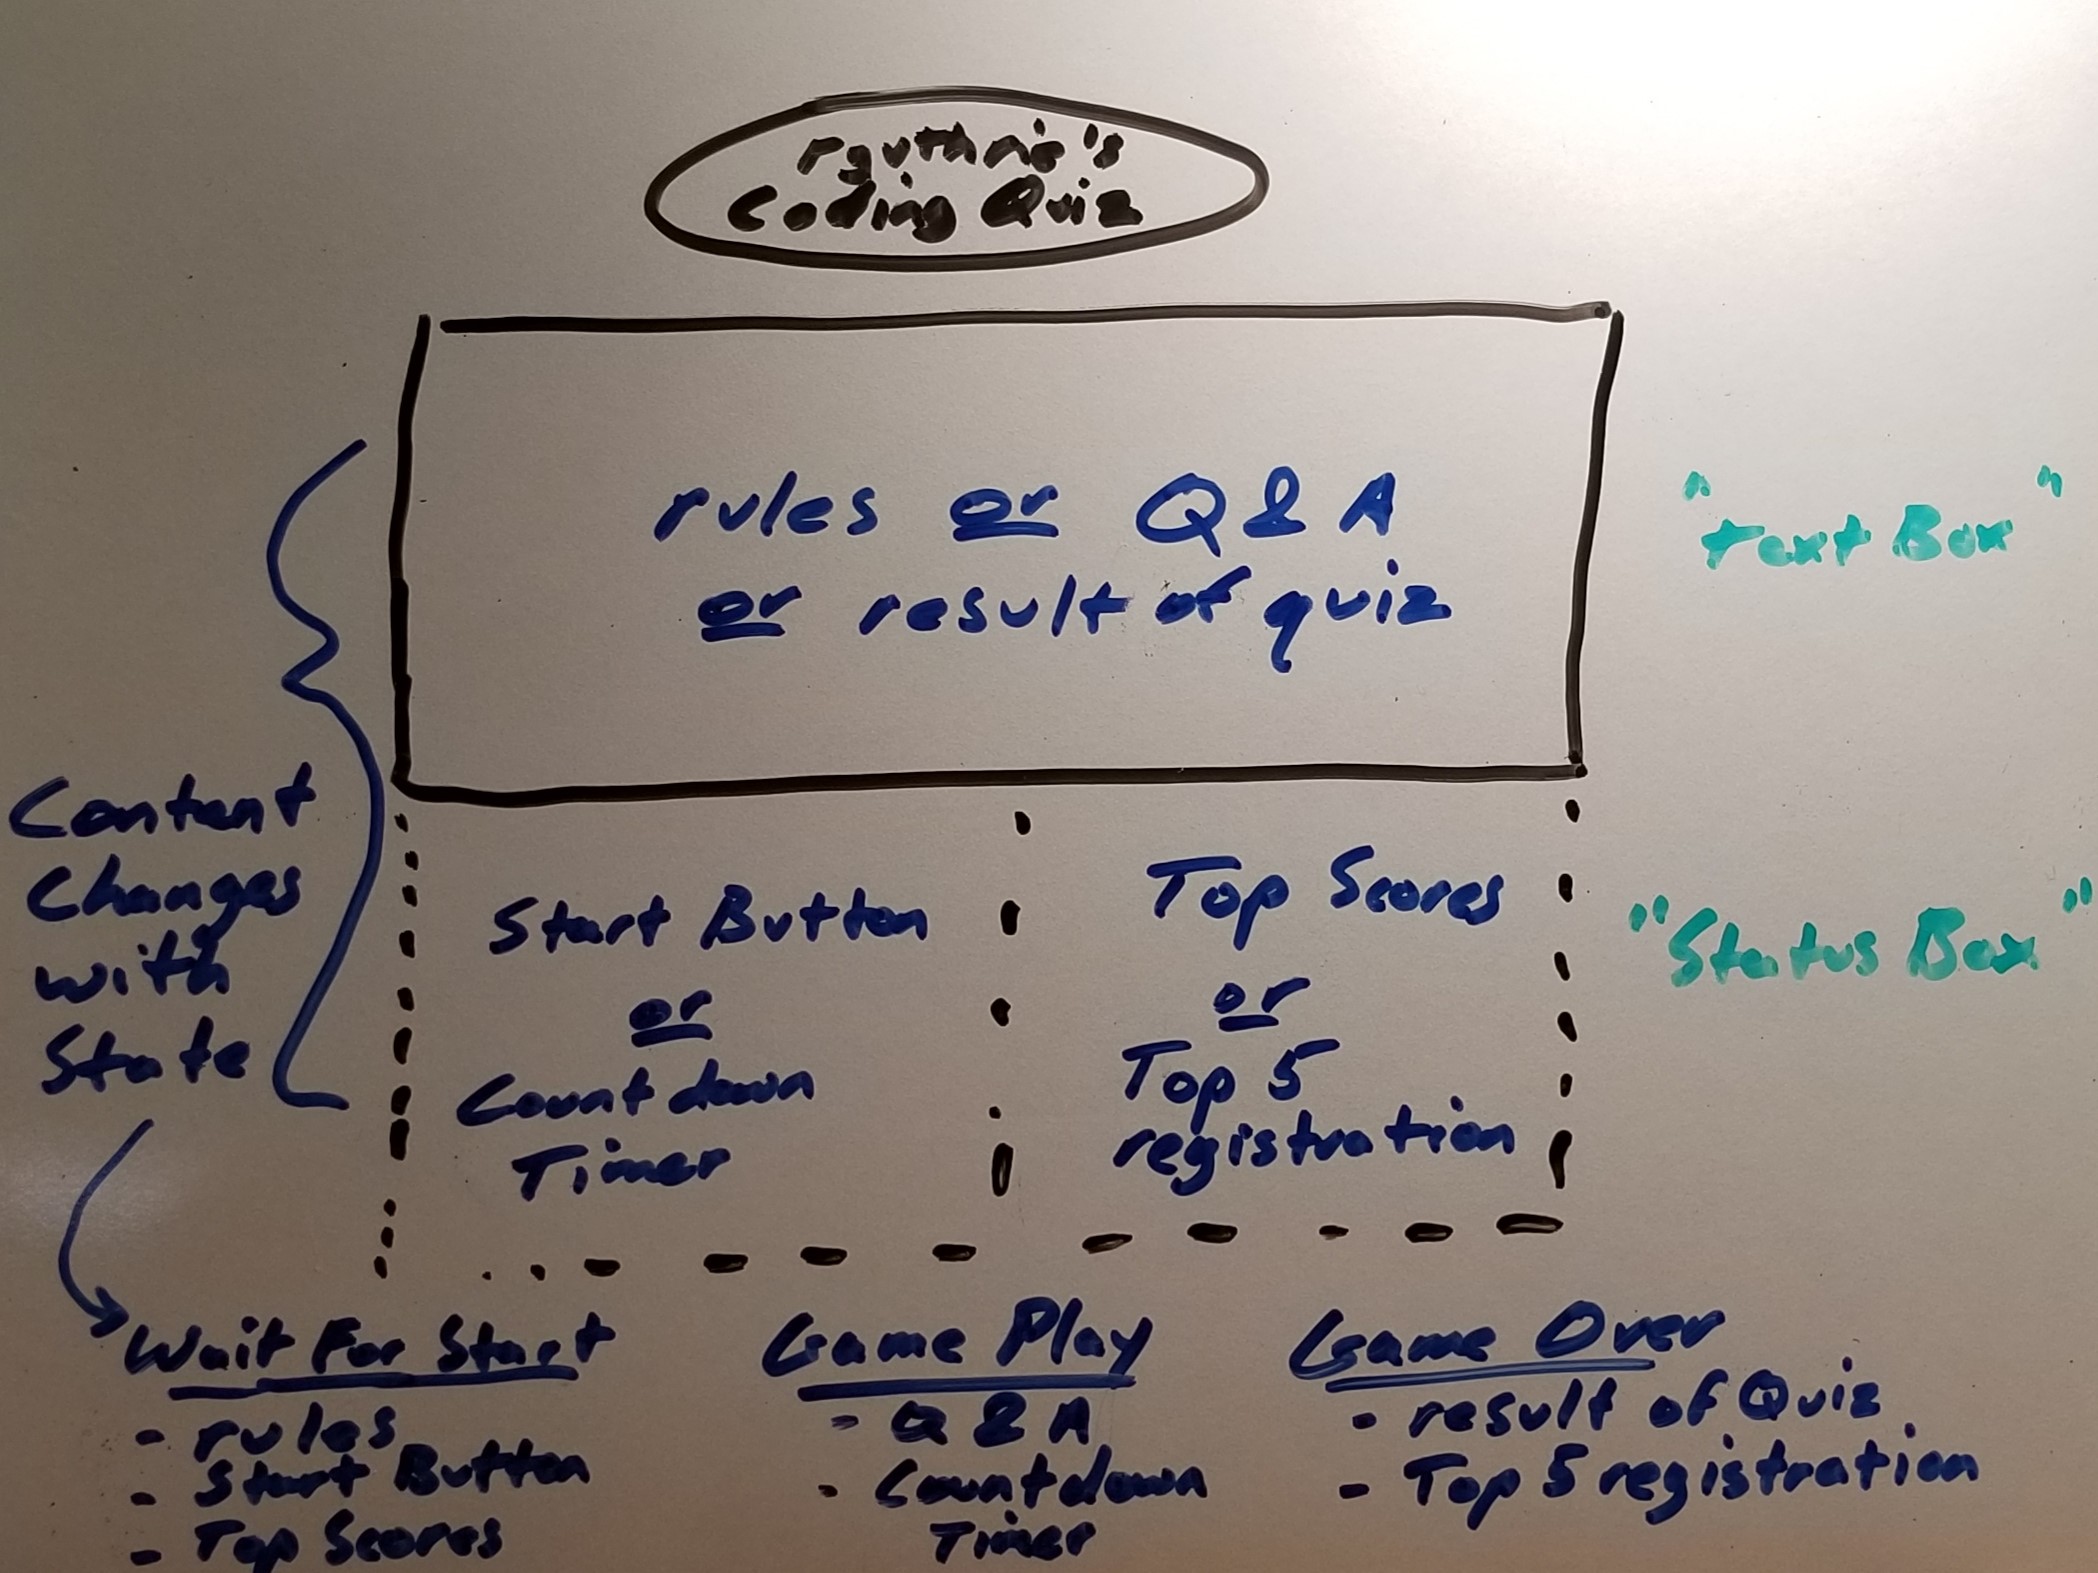 rguthrie's
Coding Quiz
rules or Q & A
or result of quiz
"text Box"
Content
Changes
with
State
Start Button
or
Countdown
Timer
Top Scores
or
Top 5
registration
"Status Box"
Wait For Start
- rules
- Start Button
- Top Scores
Game Play
- Q & A
- Countdown
Timer
Game Over
- result of Quiz
- Top 5 registration